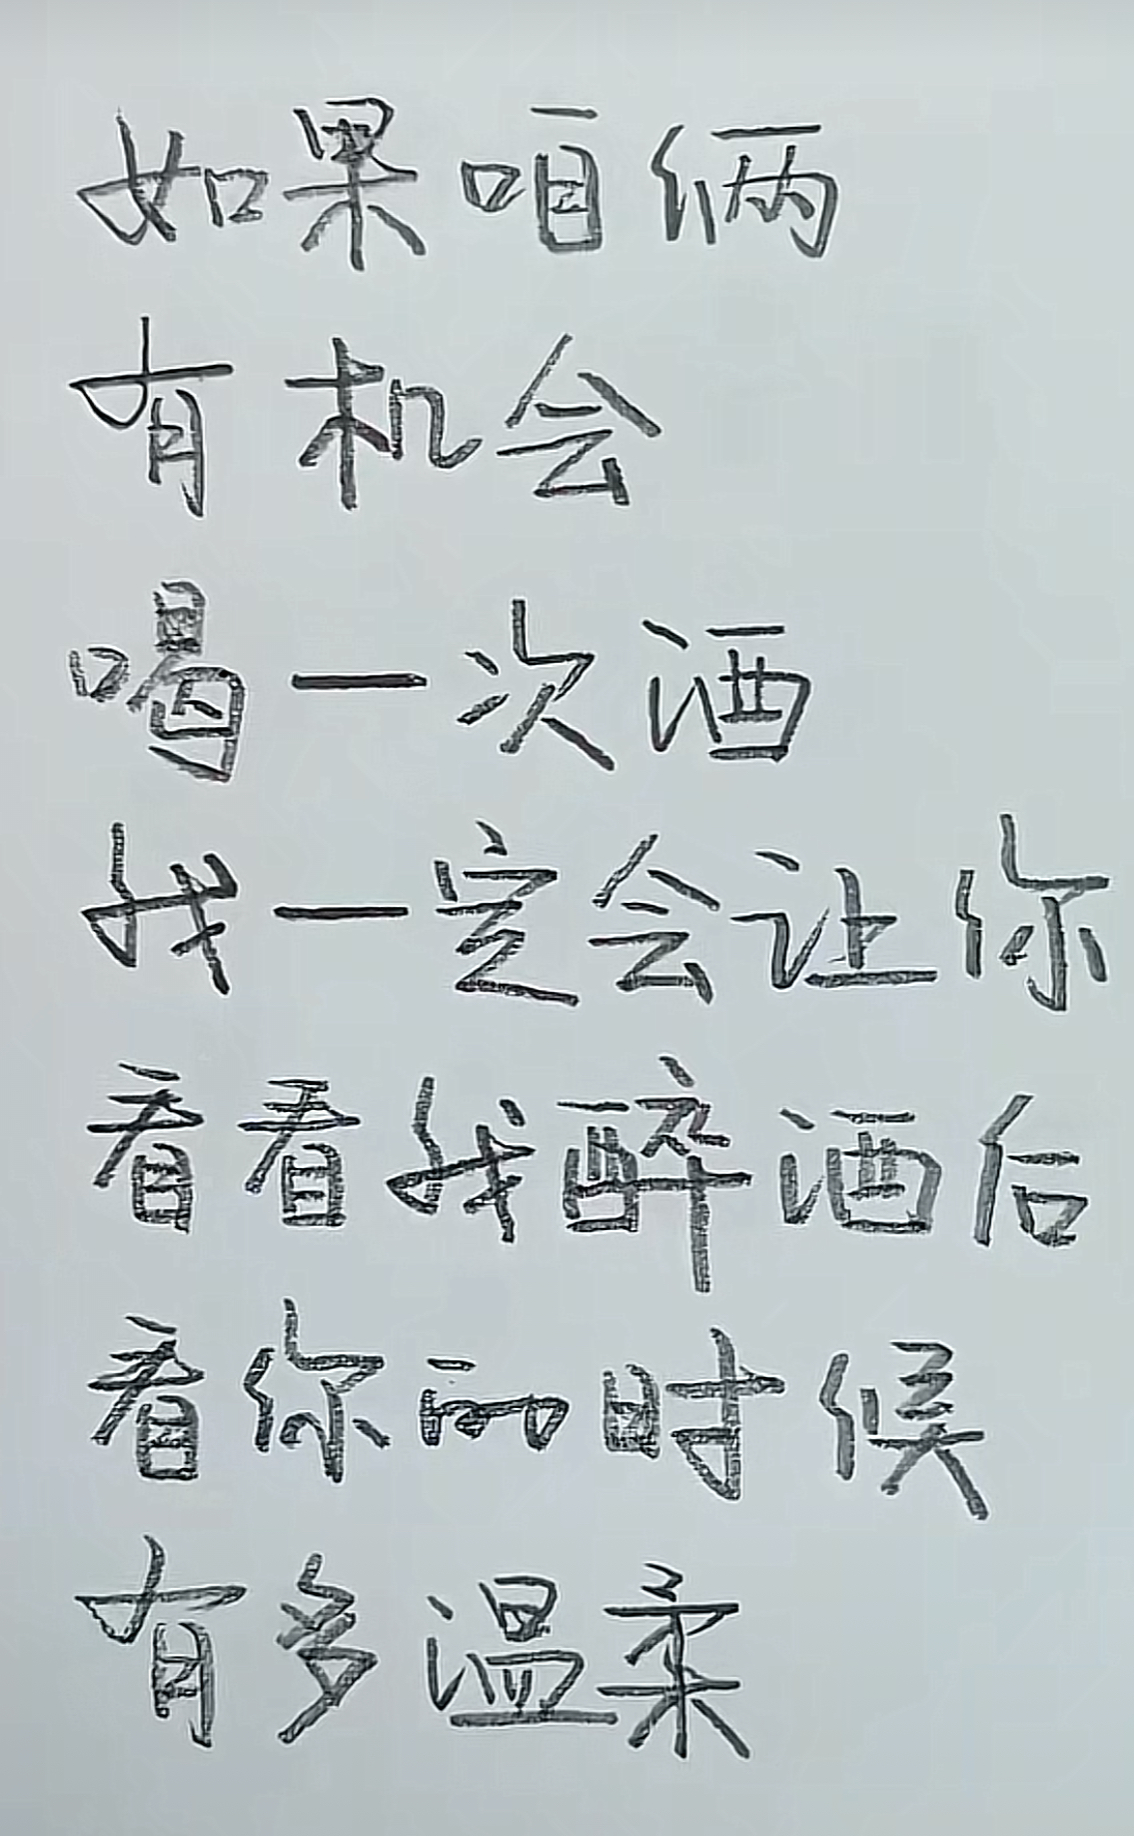 如果咱俩
有机会
喝一次酒
我一定会让你
看看我醉酒后
看你的时候
有多温柔